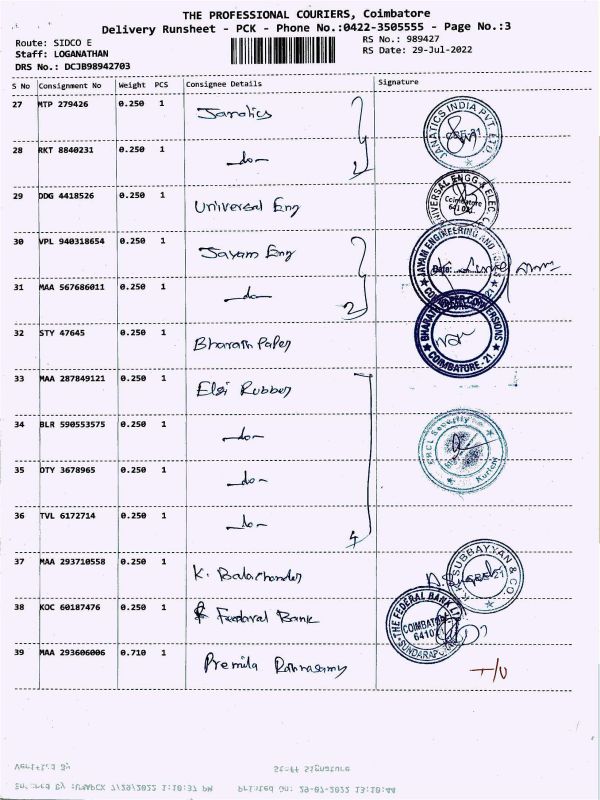 THE PROFESSIONAL COURIERS, Coimbatore
Delivery Runsheet - PCK - Phone No.:0422-3505555 - Page No.:3
Route: SIDCO E
RS No.: 989427
Staff: LOGANATHAN
RS Date: 29-Jul-2022
DRS No.: DCJB98942703
S No Consignment No Weight PCS Consignee Details Signature
27 MTP 279426 0.250 1 Janatics
JANATICS INDIA PVT. LTD.
28 RKT 8840231 0.250 1 -do-
2
29 DDG 4418526 0.250 1 Universal Eng
UNIVERSAL ENGG & ELEC
Coimbatore
641 021
30 VPL 940318654 0.250 1 Jayam Eng
JAYAM ENGINEERING AND
Date:
31 MAA 567686011 0.250 1 -do-
2
32 STY 47645 0.250 1 Bharath Paper
BHARATH PAPER CONVERSIONS
COIMBATORE - 21.
33 MAA 287849121 0.250 1 Elgi Rubber
34 BLR 590553575 0.250 1 -do-
ERCL Security
Kurichi
35 DTY 3678965 0.250 1 -do-
36 TVL 6172714 0.250 1 -do-
4
37 MAA 293710558 0.250 1 K. Balachander
SUBBAYYAN & CO
38 KOC 60187476 0.250 1 Federal Bank
THE FEDERAL BANK LTD
COIMBATORE
39 MAA 293606006 0.710 1 Premila Ramasamy
T/U
Verified By Staff Signature
Entered By :UMAPCK 7/29/2022 1:10:37 PM Printed On: 29-07-2022 13:10:44